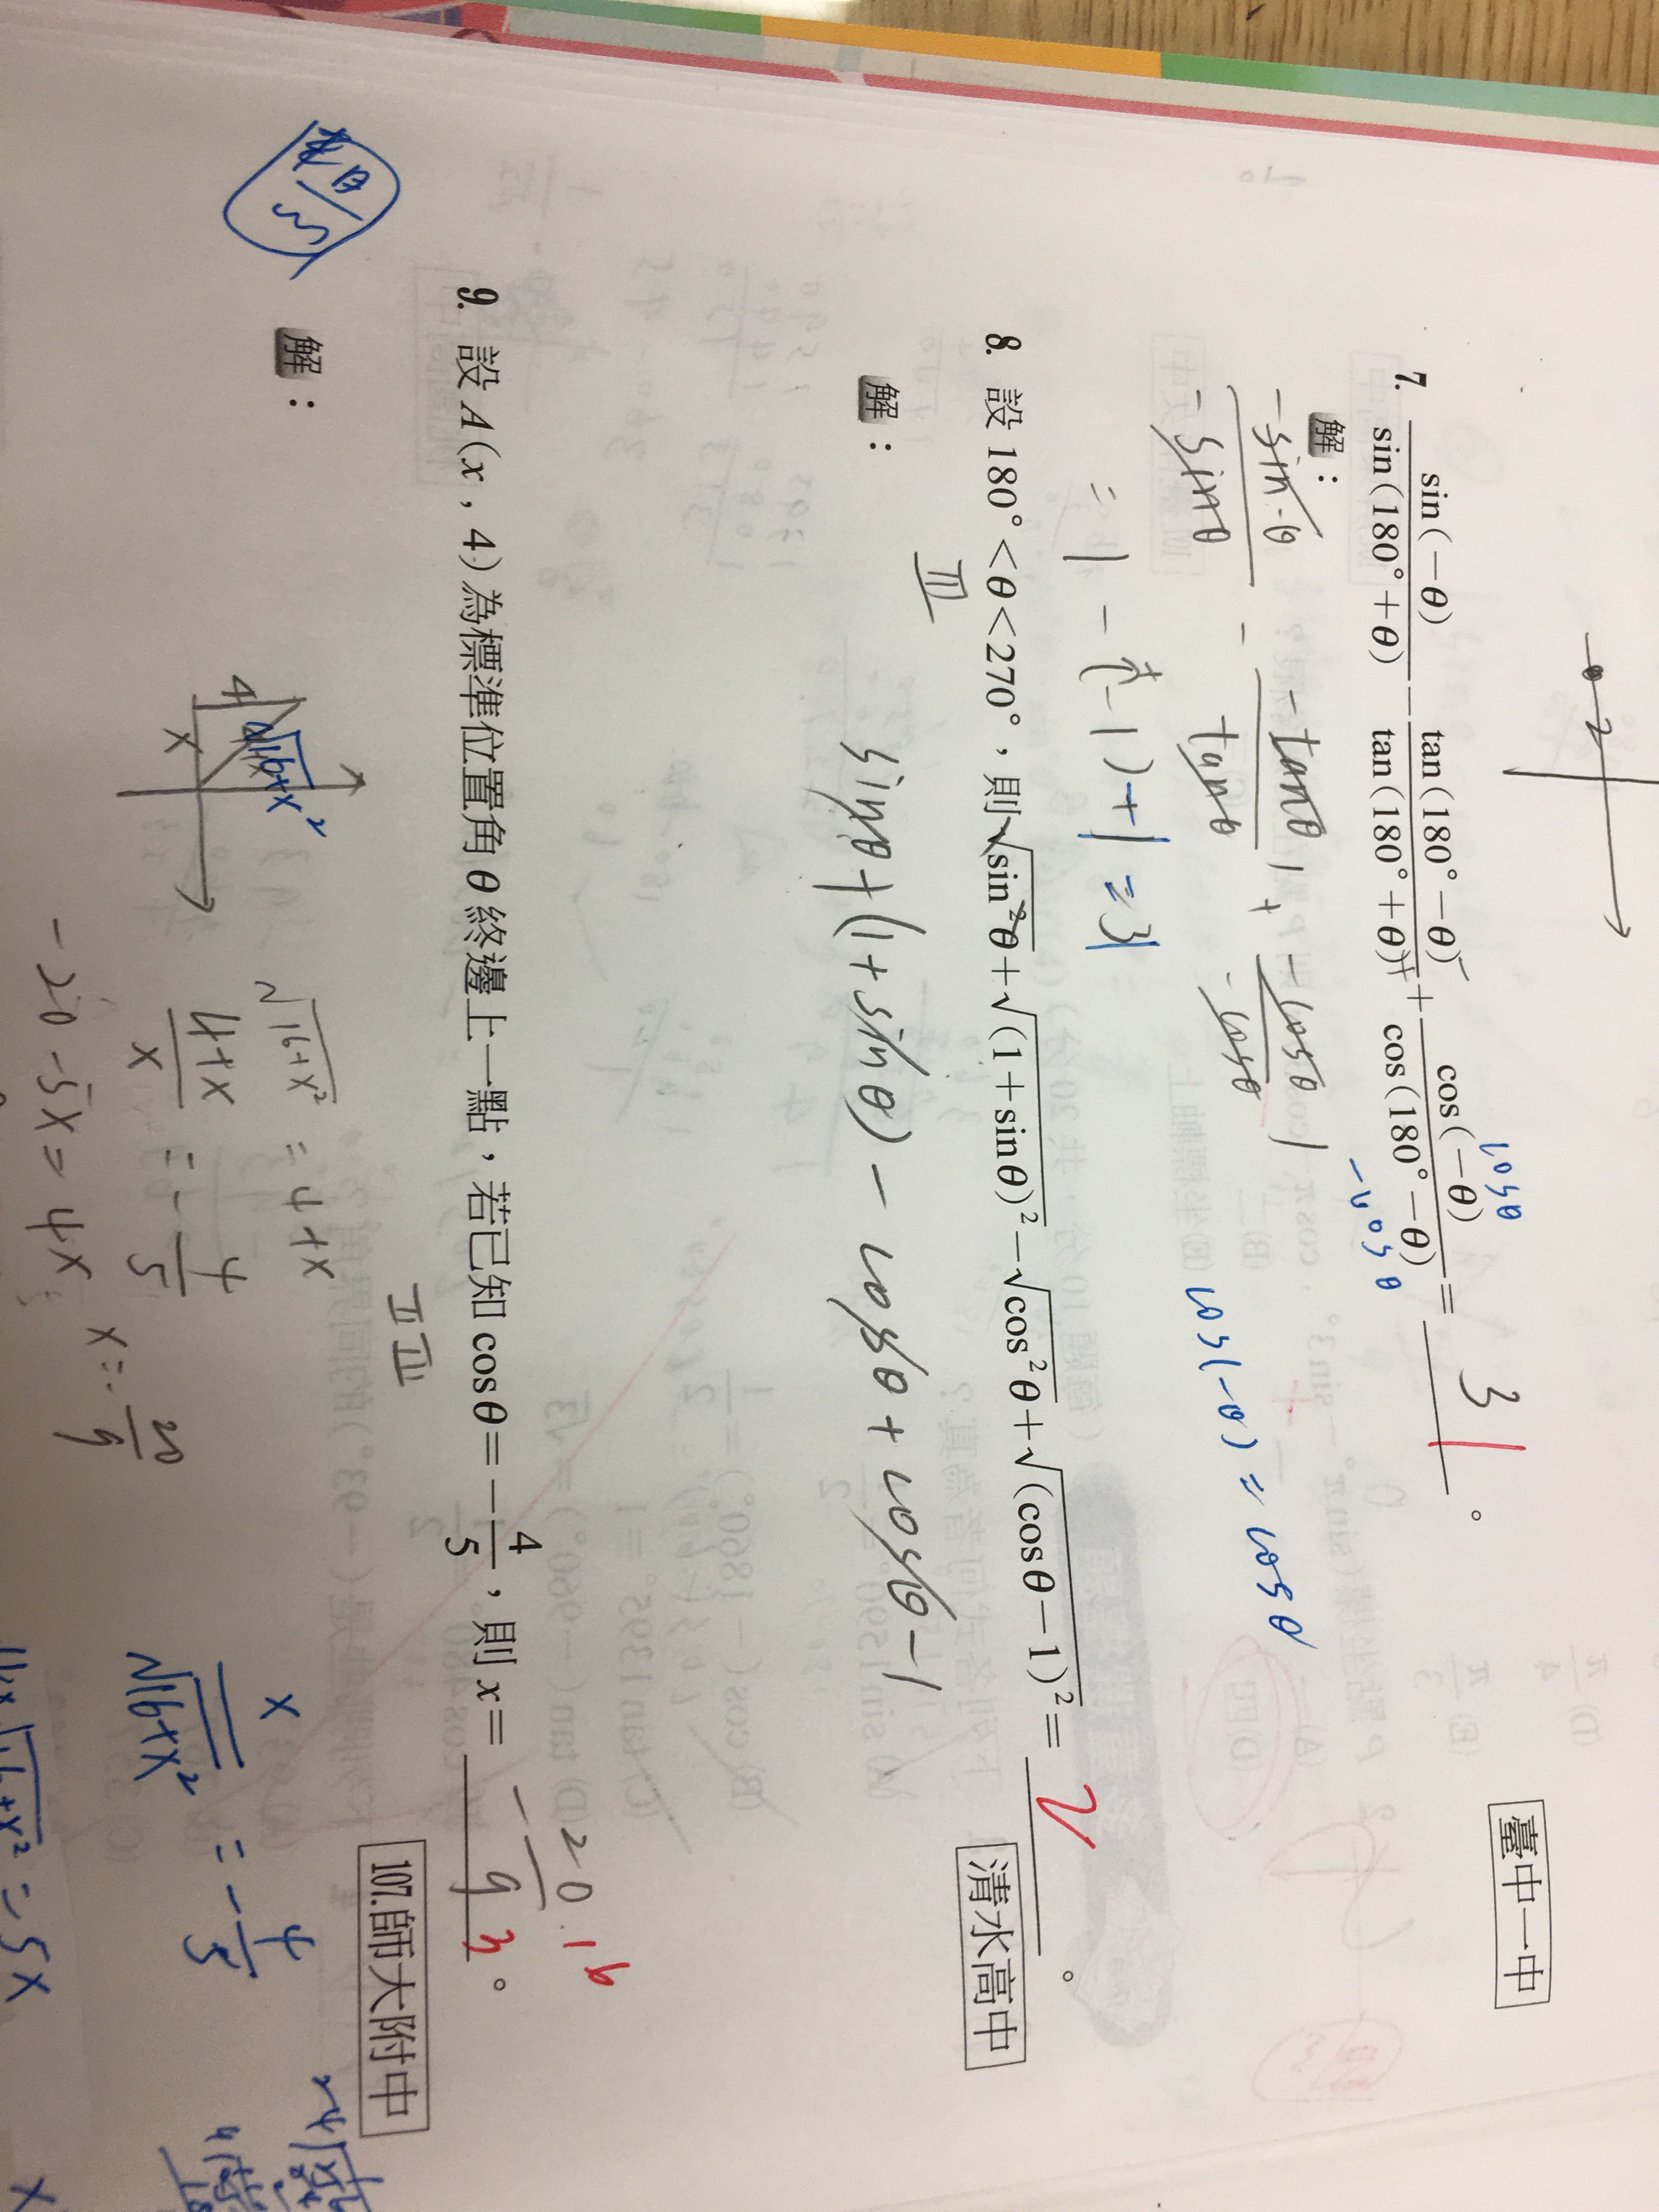 臺中一中
7. sin(−θ)/sin(180°+θ) − tan(180°−θ)/tan(180°+θ) + cos(−θ)/cos(180°−θ) = 3 1 。
cosθ
−cosθ
解：
−sinθ/−sinθ − −tanθ/tanθ + −cosθ/−cosθ
cos(−θ) = cosθ
= 1 − (−1) + 1 = 3
8. 設 180°<θ<270°，則√sin²θ+√(1+sinθ)²−√cos²θ+√(cosθ−1)²= 2 。
III
清水高中
解：
sinθ+(1+sinθ) − cosθ + cosθ−1
9. 設 A(x , 4)為標準位置角 θ 終邊上一點，若已知 cosθ=−4/5，則 x= −20/9 。
II III
107.師大附中
解：
4
x
√16+x²
√16+x² = 4+x
4+x/x = −4/5
−20−5x = 4x
x=−20/9
x/√16+x² = −4/5